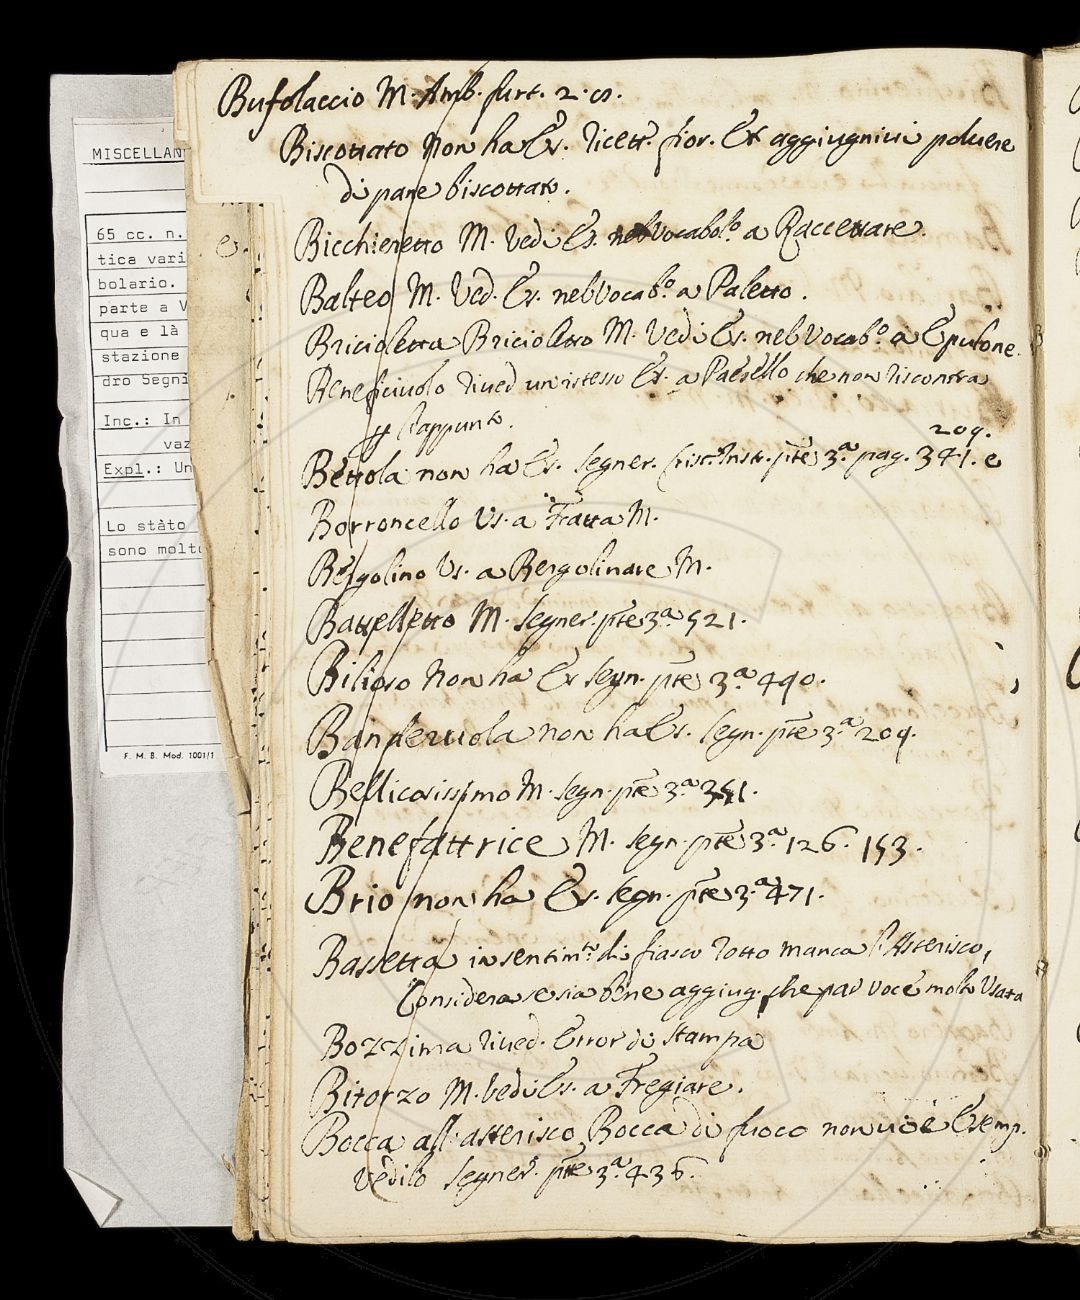 Bufolaccio M. Amb. furt. 2. cs.
Biscottato Non ha Es. ricett. fior. Et aggiugnivi polvere
di pane biscottato.
Bicchieretto M. Vedi Es. nel Vocabol.º a Raccettare.
Balteo M. Ved. Es. nel Vocab.º a Paletto.
Bricioletta Bricioletto M. Vedi Es. nel Vocab.º a Epulone.
Beneficiuolo rived un istesso Es. a Paesello che non riscontra
p l'appunto.
209.
Bettola non ha Es. Segner. Crist. Instr. pte 3.ª pag. 341. e
Borroncello Vs. a Fratta M.
Bergolino Vs. a Bergolinare M.
Battelletto M. Segner. pte 3.ª 521.
Bilioso Non ha Es Segn. pte 3.ª 490.
Banderuola non ha Es. Segn. pte 3.ª 209.
Bellicosissimo M. Segn. pte 3.ª 351.
Benefattrice M. Segn. pte 3.ª 126. 153.
Brio non ha Es. Segn. pte 3.ª 471.
Bassetta in sentim.to di fiasco rotto manca l'Asterisco,
Considera se sia bene aggiug. che par voce molto Usata
Bozzima rived. Error di Stampa
Bitorzo M. Vedi Es. a Fregiare.
Bocca all'asterisco Bocca di fuoco non vi è Esemp.
vedilo Segner. pte 3.ª 436.
MISCELLAN
65 cc. n.
tica vari
bolario.
parte a V
qua e là
stazione
dro Segni
Inc.: In
vaz
Expl.: Un
Lo stàto
sono molto
F. M. B. Mod. 1001/1